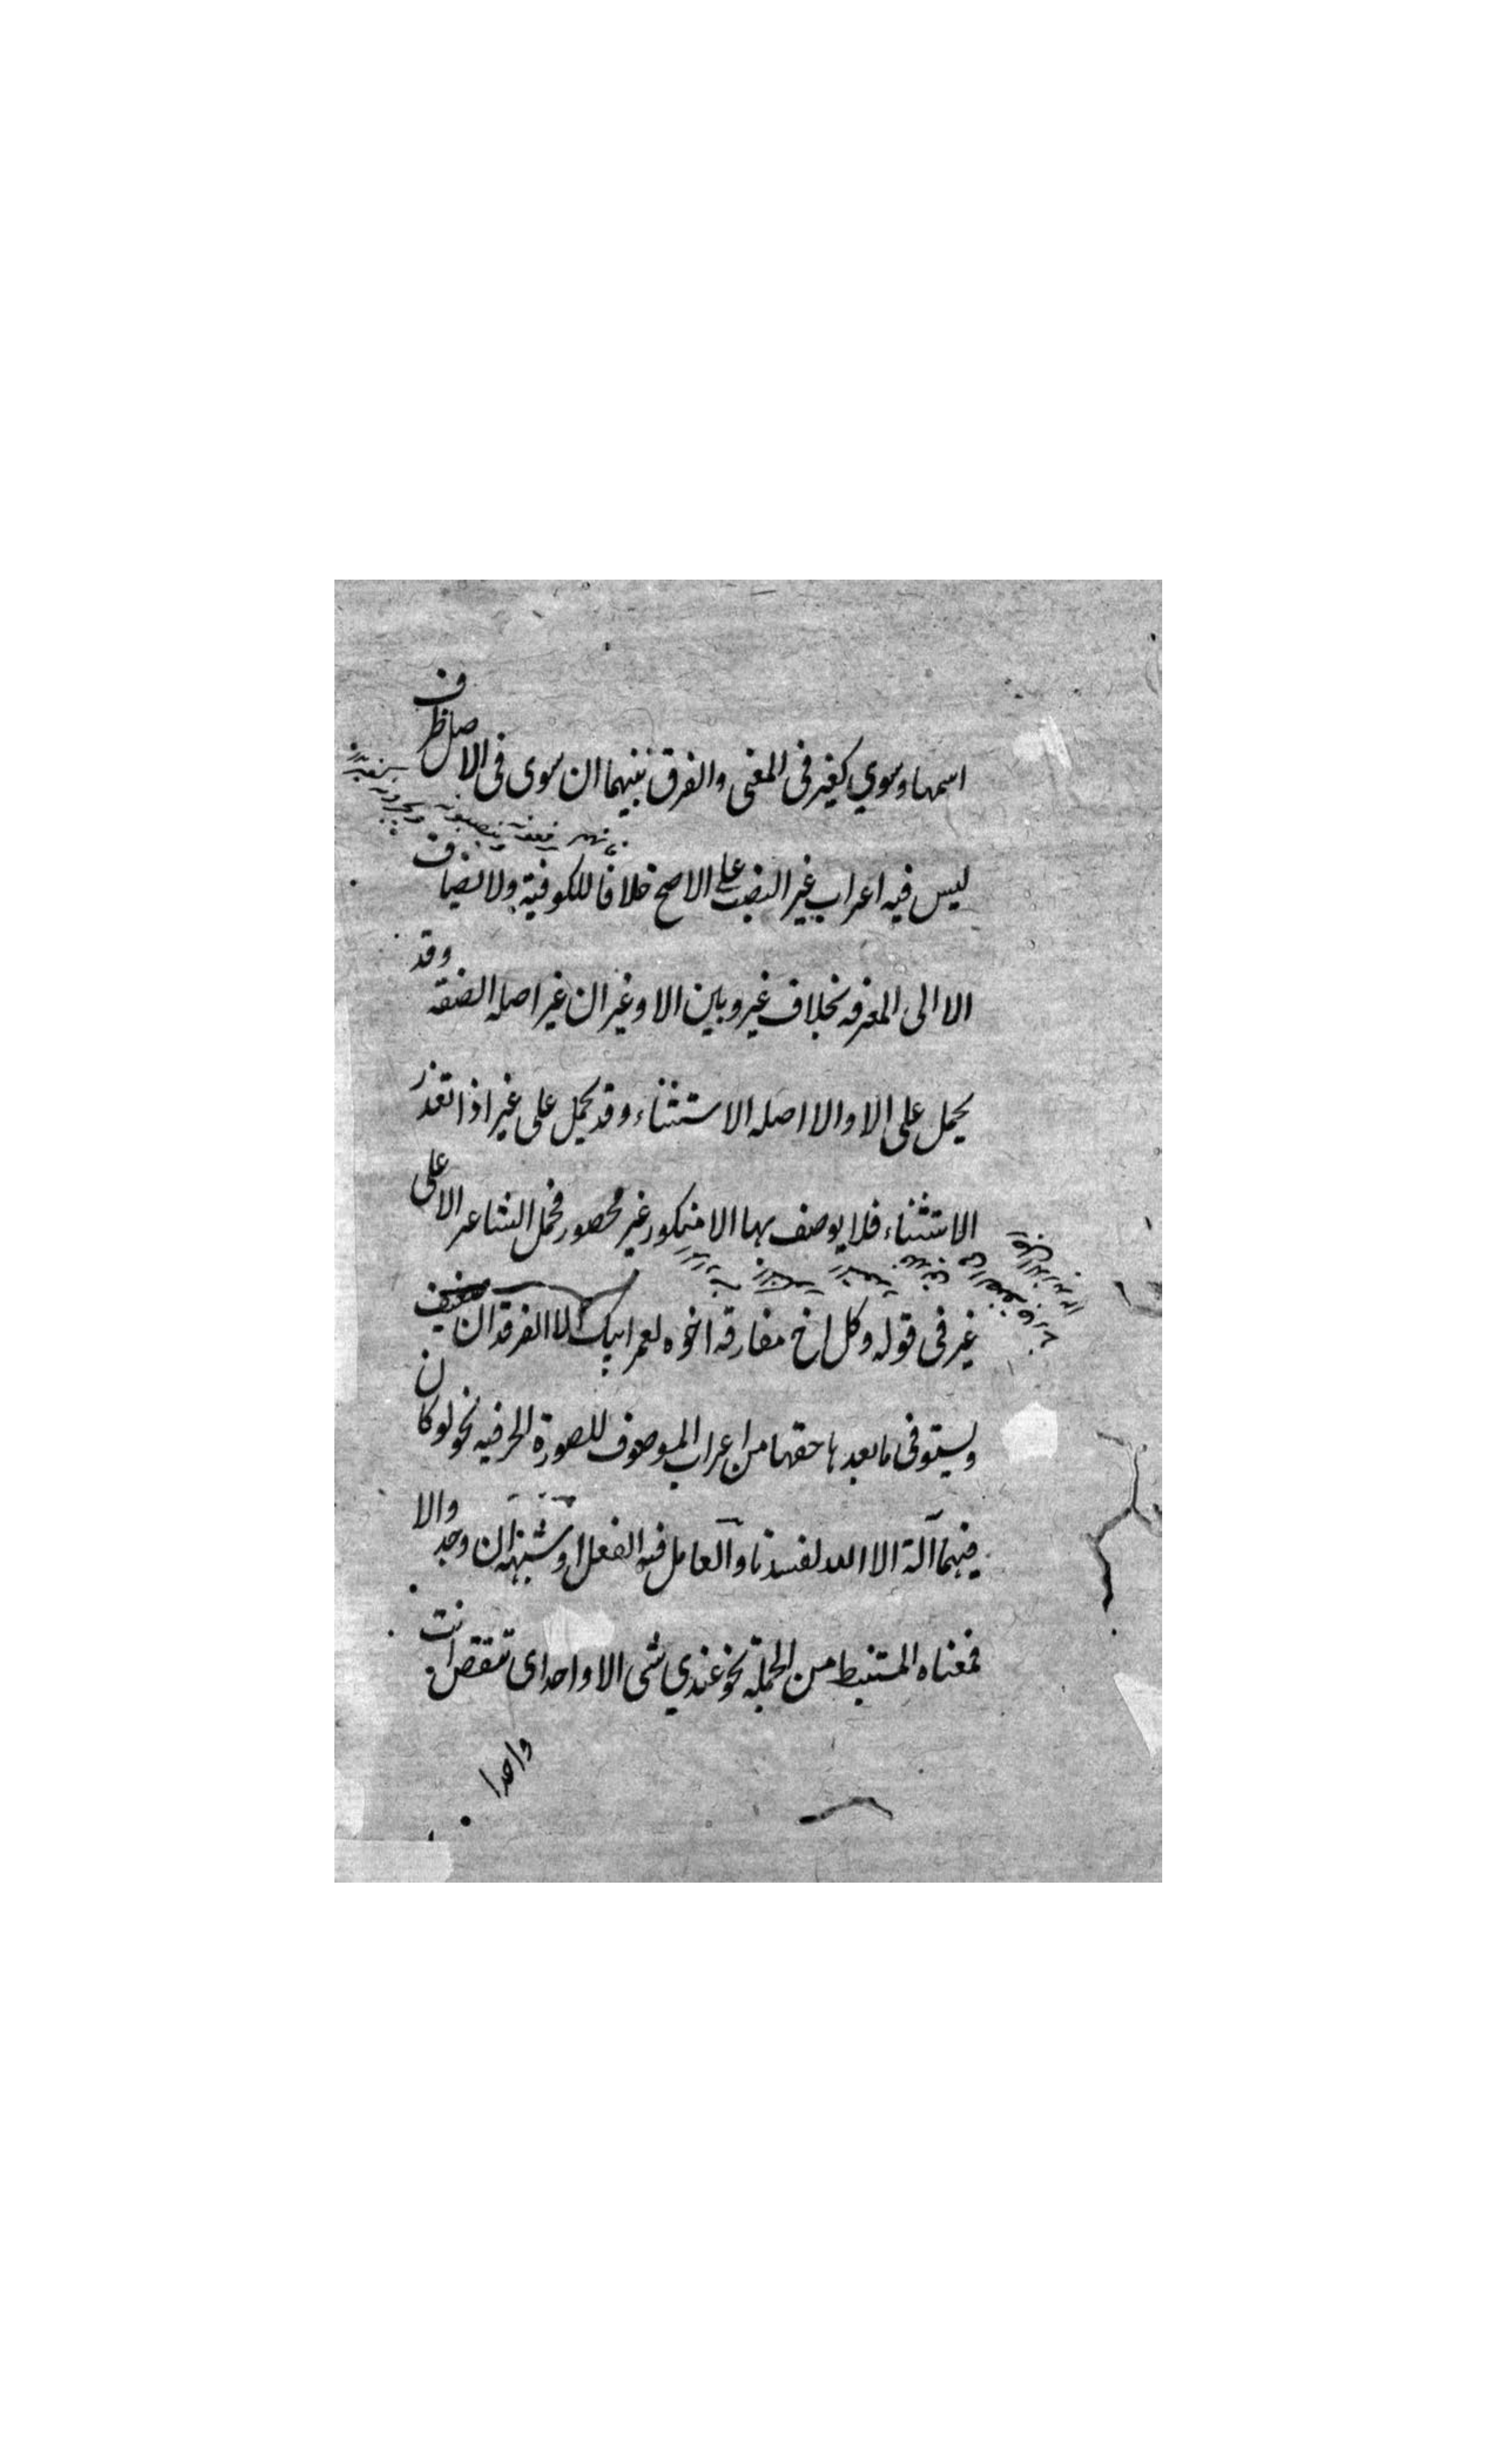 اسمها وسوي كغير فى المعنى والفرق بينهما ان سوى فى الاصل ظرف
ليس فيه اعراب غير النصب على الاصح خلافا للكوفية ولا يضاف
الا الى المعرفه بخلاف غير وبين الا وغير ان غير اصله الصفه وقد
يحمل على الا والا اصله الاستثناء وقد يحمل على غير اذا تعذر
الاستثناء فلا يوصف بها الا منكور غير محصور فحمل الشاعر الا على
غير فى قوله وكل اخ مفارقه اخوه لعمر ابيك الا الفرقدان ضعيف
ويستوفى ما بعدها حقها من اعراب الموصوف للصورة الحرفيه نحو لو كان
فيهما آلة الا الله لفسدتا والعامل فيه الفعل او شبهه ان وجد والا
فمعناه المستنبط من الجملة نحو عندي شى الا واحدا ى تنقص انت
واحدا